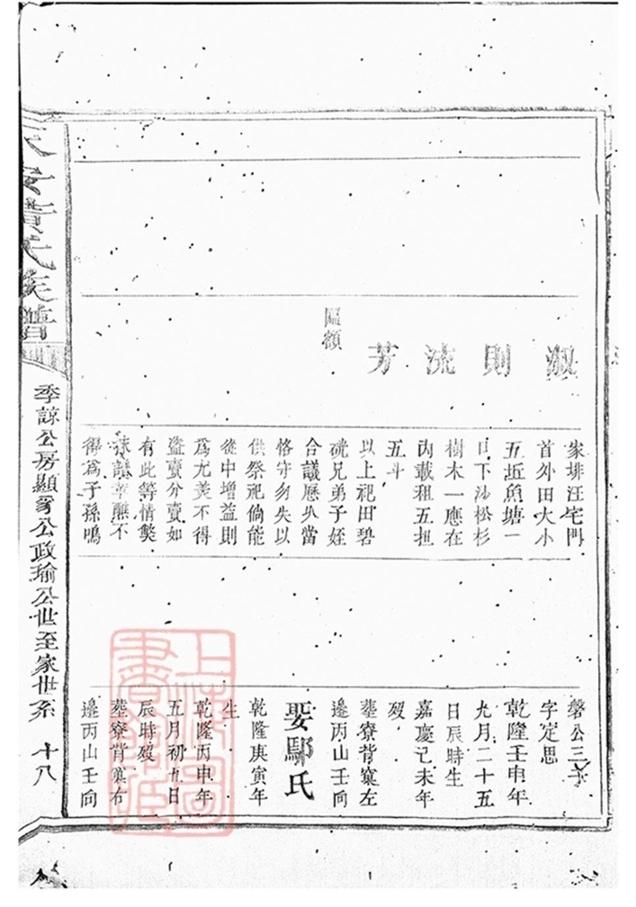 淑則流芳
匾額
家排汪宅門
首外田大小
五坵魚塘一
口下沙松杉
樹木一應在
內載租五担
五斗
以上祀田碧
硄兄弟子姪
合議歷久當
恪守勿失以
供祭祀倘能
從中增益則
為尤美不得
盜賣分賣如
有此等情獘
不
得為子孫鳴
磐公三子
字定思
乾隆壬申年
九月二十五
日辰時生
嘉慶己未年
歿
葬寮背窠左
邊丙山壬向
娶鄢氏
乾隆庚寅年
生
乾隆丙申年
五月初九日
辰時歿
葬寮背窠右
邊丙山壬向
黃氏族譜
季諒公房顯公政瑜公世至家世系 十八
上海圖書館